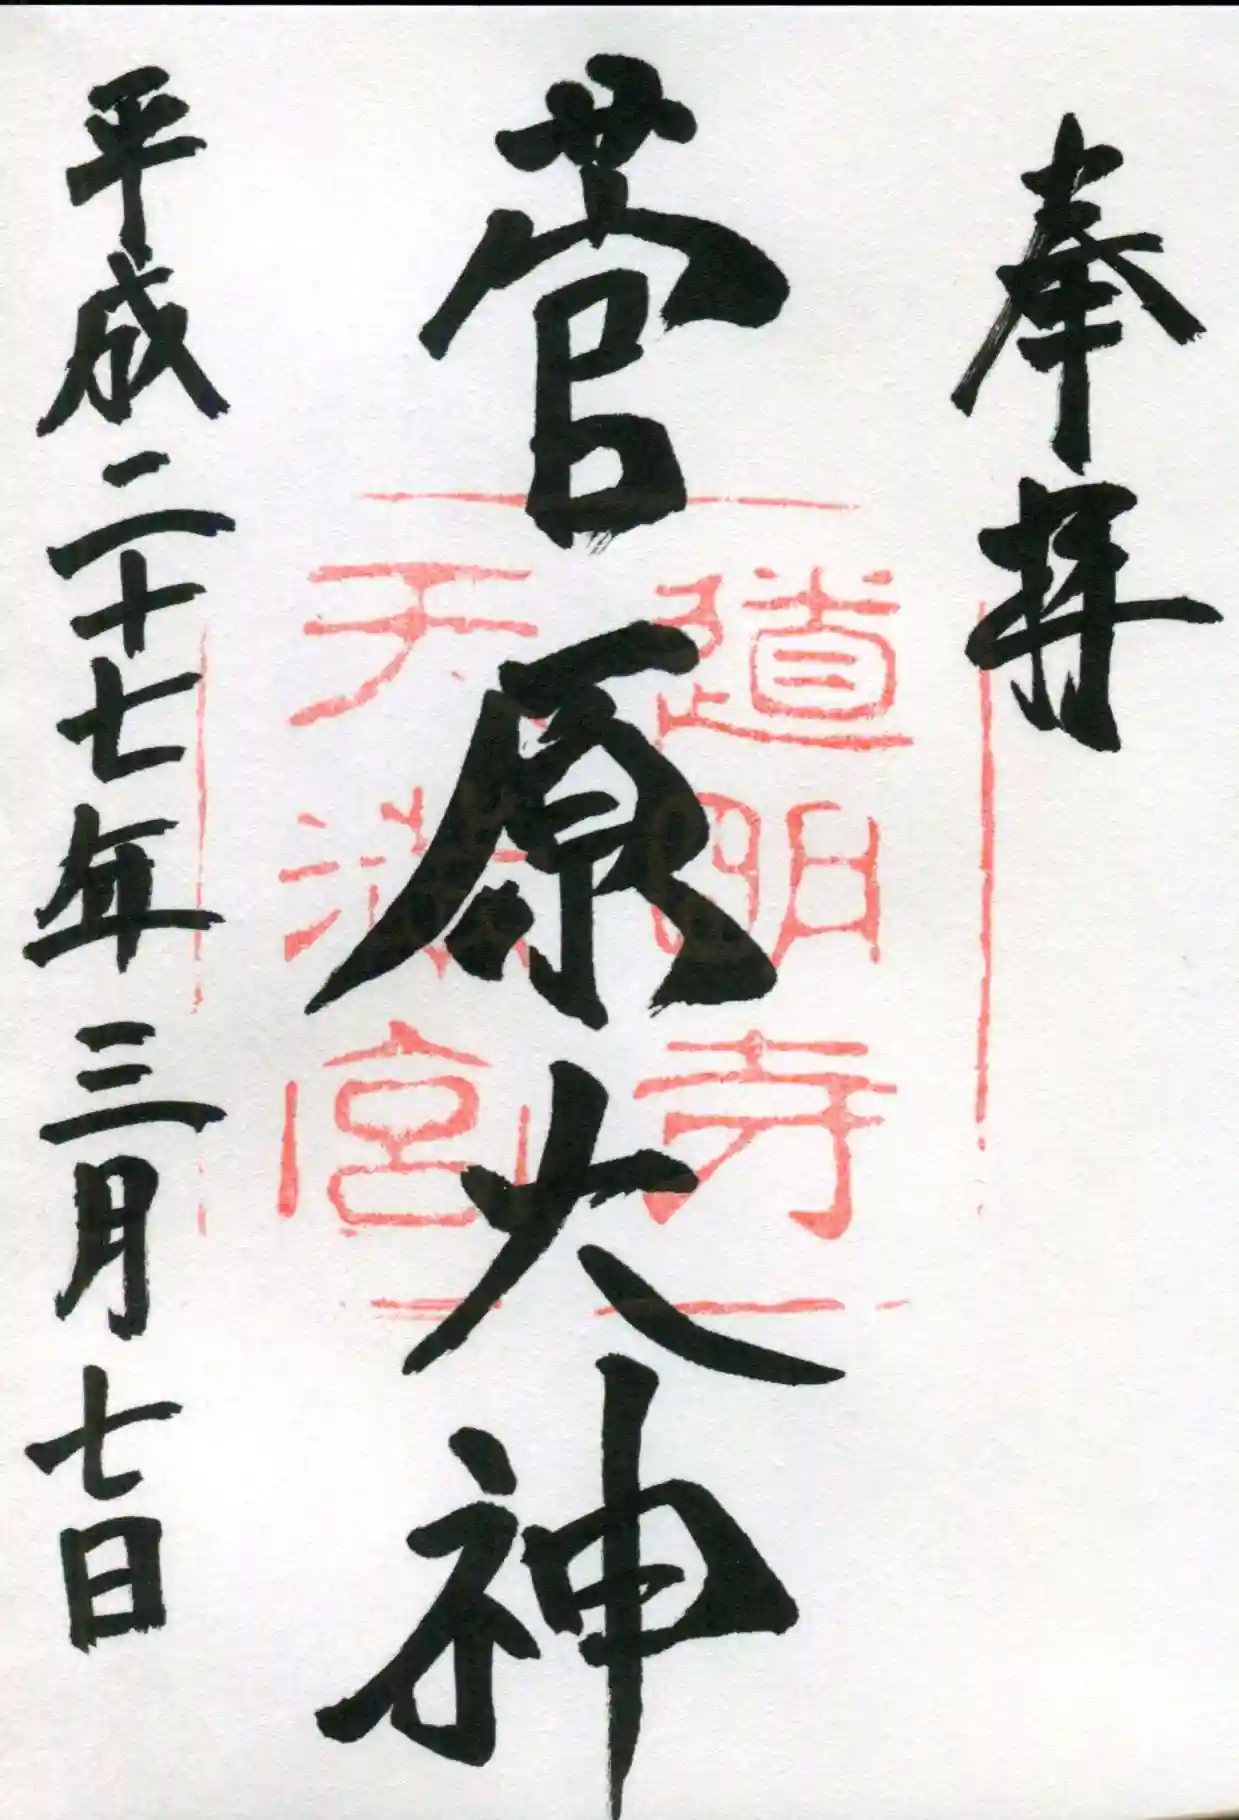 奉拝
菅原大神
道明寺
天満宮
平成二十七年三月七日